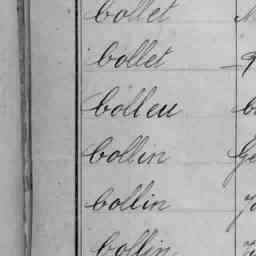 Collet
Collet
Colleu
Collin
Collin
Collin